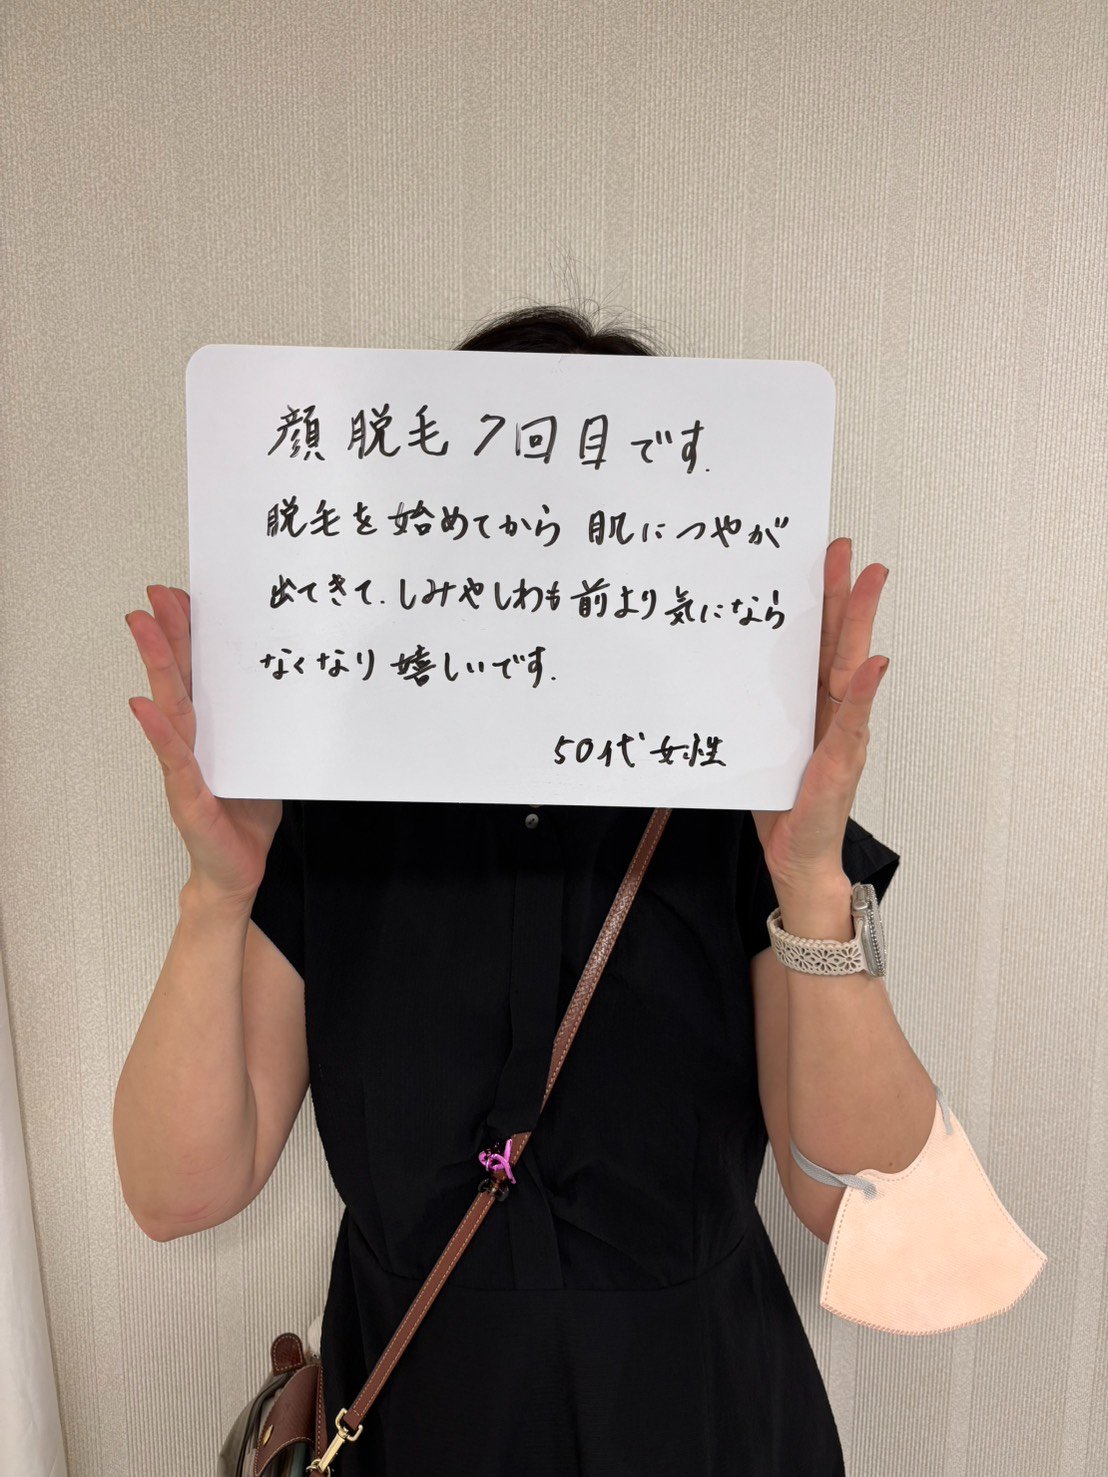 顔脱毛7回目です.
脱毛を始めてから 肌につやが
出てきて.しみやしわも前より気になら
なくなり嬉しいです.
50代女性